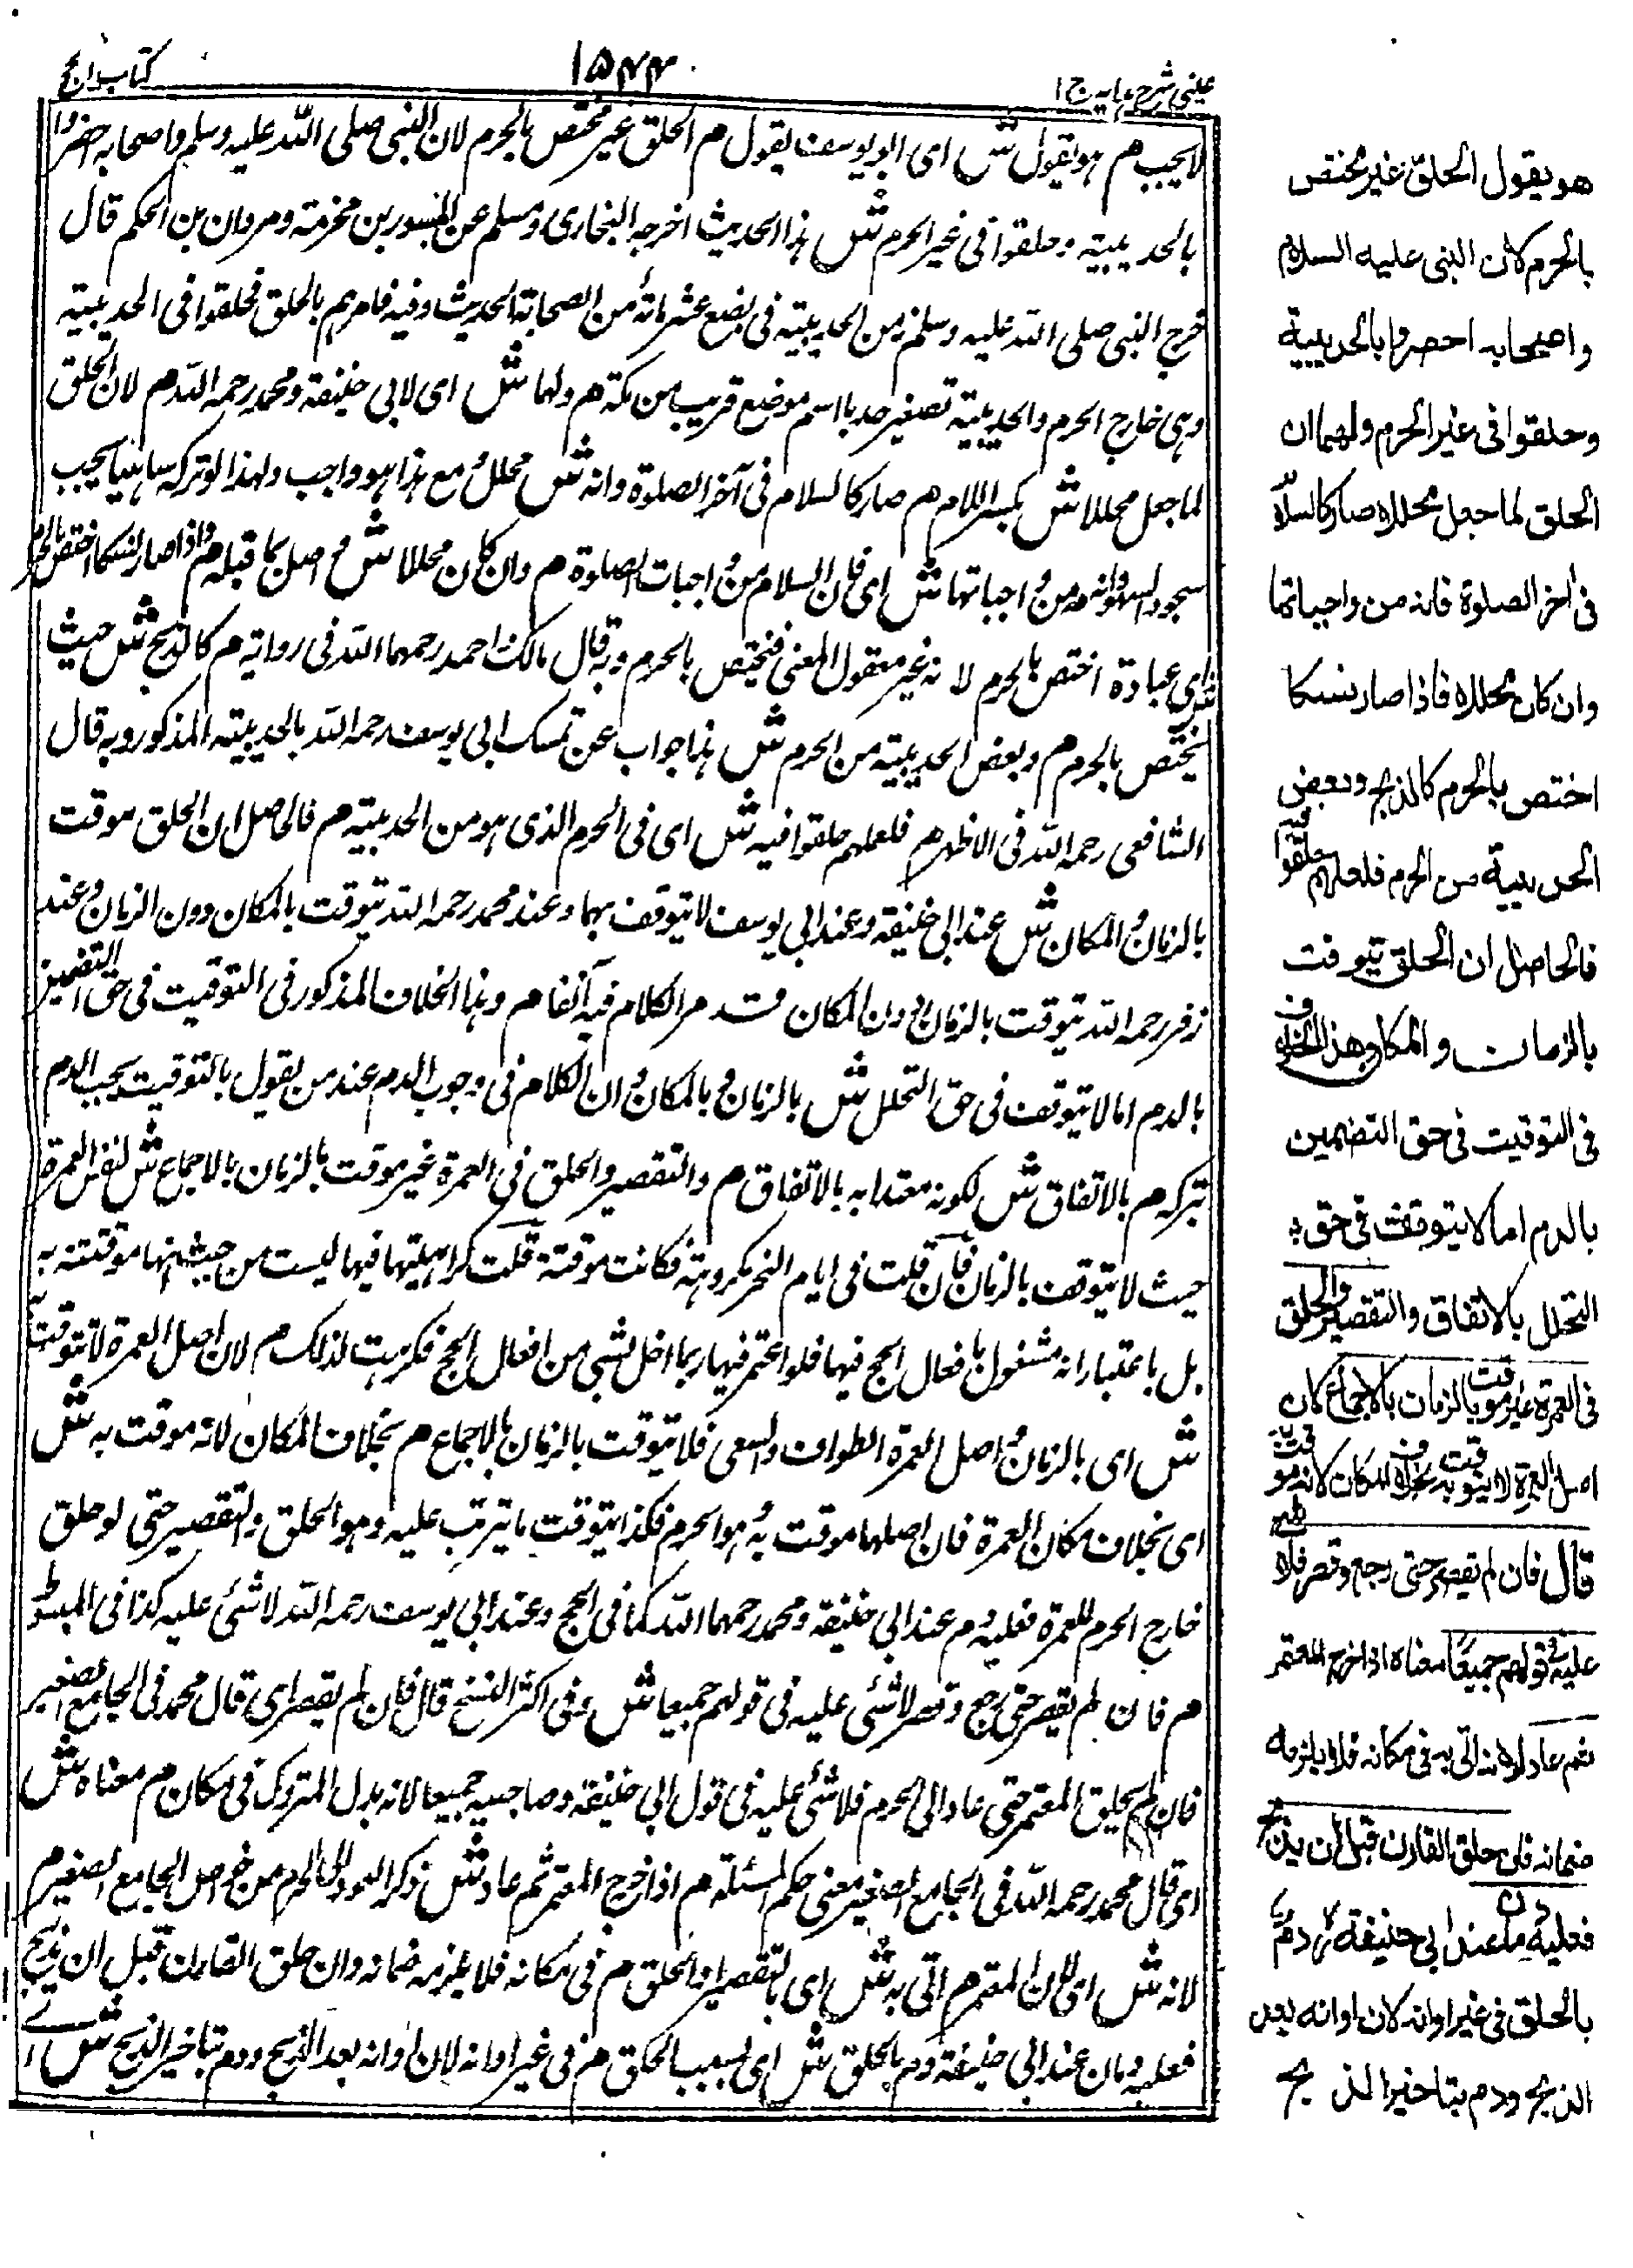 عینی شرح ہدایہ ج ۱
۱۵۴۴
کتاب الحج
لا یجب م ہو یقول ش ای ابو یوسف یقول م الحلق غیر مختص بالحرم لان النبی صلی اللہ علیہ وسلم واصحابہ احصروا
بالحدیبیة وحلقوا فی غیر الحرم ش ہذا الحدیث اخرجہ البخاری ومسلم عن المسور بن مخرمة ومروان بن الحکم قال
خرج النبی صلی اللہ علیہ وسلم زمن الحدیبیة فی بضع عشر مائة من الصحابة الحدیث وفیہ فامرہم بالحلق فحلقوا فی الحدیبیة
وہی خارج الحرم والحدیبیة تصغیر حدبا اسم موضع قریب من مکة م ولہما ش ای لابی حنیفة ومحمد رحمہ اللہ م لان الحلق
لما جعل محللا ش بکسر اللام م صار کالسلام فی آخر الصلوة وانہ ش محلل مع ہذا ہو واجب ولہذا لو ترکہ ساہیا یجب
سجود السہو م فانہ من واجباتہا ش ای فان السلام من واجبات الصلوة م وان کان محللا ش واصل بما قبلہ م فاذا صار نسکا اختص بالحرم
ش ای عبادة اختص بالحرم لانہ غیر معقول المعنی فیختص بالحرم وبہ قال مالک واحمد رحمہما اللہ فی روایة م کالذبح ش حیث
یختص بالحرم م وبعض الحدیبیة من الحرم ش ہذا جواب عن تمسک ابی یوسف رحمہ اللہ بالحدیبیة المذکور وبہ قال
الشافعی رحمہ اللہ فی الاظہر م فلعلہم حلقوا فیہ ش ای فی الحرم الذی ہو من الحدیبیة م فالحاصل ان الحلق موقت
بالزمان والمکان ش عند ابی حنیفة وعند ابی یوسف لا یتوقف بہما وعند محمد رحمہ اللہ یتوقت بالمکان دون الزمان وعند
زفر رحمہ اللہ یتوقت بالزمان دون المکان قد مر الکلام فیہ آنفا م وہذا الخلاف المذکور فی التوقیت فی حق التضمین
بالدم اما لا یتوقف فی حق التحلل ش بالزمان وبالمکان وان الکلام فی وجوب الدم عند من یقول بالتوقیت یجب الدم
بترکہ م بالاتفاق ش لکونہ معتدا بہ بالاتفاق م والتقصیر والحلق فی العمرة غیر موقت بالزمان بالاجماع ش لنفس العمرة
حیث لا یتوقف بالزمان فان قلت فی ایام النحر مکروہة فکانت موقتة قلت کراہیتہا فیہا لیست من حیث انہا موقتة بہ
بل باعتبار انہ مشغول بافعال الحج فیہا فلو اعتمر فیہا ربما اخل بشیئ من افعال الحج فکرہت لذلک م لان اصل العمرة لا تتوقت بہ
ش ای بالزمان واصل العمرة الطواف والسعی فلا یتوقت بالزمان بالاجماع م بخلاف المکان لانہ موقت بہ ش
ای بخلاف مکان العمرة فان اصلہا موقت بہ وہو الحرم فکذا یتوقت ما یترتب علیہ وہو الحلق والتقصیر حتی لو حلق
خارج الحرم للعمرة فعلیہ دم عند ابی حنیفة ومحمد رحمہما اللہ کما فی الحج وعند ابی یوسف رحمہ اللہ لا شئ علیہ کذا فی المبسوط
م فان لم یقصر حتی رجع وقصر لا شئ علیہ فی قولہم جمیعا ش وفی اکثر النسخ قال فان لم یقصر ای قال محمد فی الجامع الصغیر
فان لم یحلق المعتمر حتی عاد الی الحرم فلا شئ علیہ فی قول ابی حنیفة وصاحبیہ جمیعا لانہ بدل المتروک فی مکان م معناہ ش
ای قال محمد رحمہ اللہ فی الجامع الصغیر معنی حکم المسئلة م اذا خرج المعتمر ثم عاد ش ذکر العود الی الحرم من خواص الجامع الصغیر م
لانہ ش ای لان المعتمر م اتی بہ ش ای بالتقصیر او الحلق م فی مکانہ فلا یلزمہ ضمانہ وان حلق القارن قبل ان یذبح
فعلیہ دمان عند ابی حنیفة دم بالحلق ش ای بسبب الحلق م فی غیر اوانہ لان اوانہ بعد الذبح ودم بتاخیر الذبح ش
هو یقول الحلق غیر مختص
بالحرم لان النبی علیه السلام
واصحابه احصروا بالحدیبیة
وحلقوا فی غیر الحرم ولهما ان
الحلق لما جعل محللا صار کالسلام
فی اخر الصلوة فانه من واجباتها
وان کان محللا فاذا صار نسکا
اختص بالحرم کالذبح وبعض
الحدیبیة من الحرم فلعلهم حلقوا فیه
فالحاصل ان الحلق یتوقت
بالزمان والمکان وهذا الخلاف
فی التوقیت فی حق التضمین
بالدم اما لا یتوقف فی حق
التحلل بالاتفاق والتقصیر والحلق
فی العمرة غیر موقت بالزمان بالاجماع لان
اصل العمرة لا یتوقت به بخلاف المکان لانه موقت به
قال فان لم یقصر حتی رجع وقصر فلا شئ
علیه فی قولهم جمیعا معناه اذا خرج المعتمر
ثم عاد لانه اتی به فی مکانه فلا یلزمه
ضمانه فان حلق القارن قبل ان یذبح
فعلیه دمان عند ابی حنیفة رح دم
بالحلق فی غیر اوانه لان اوانه بعد
الذبح ودم بتاخیر الذبح